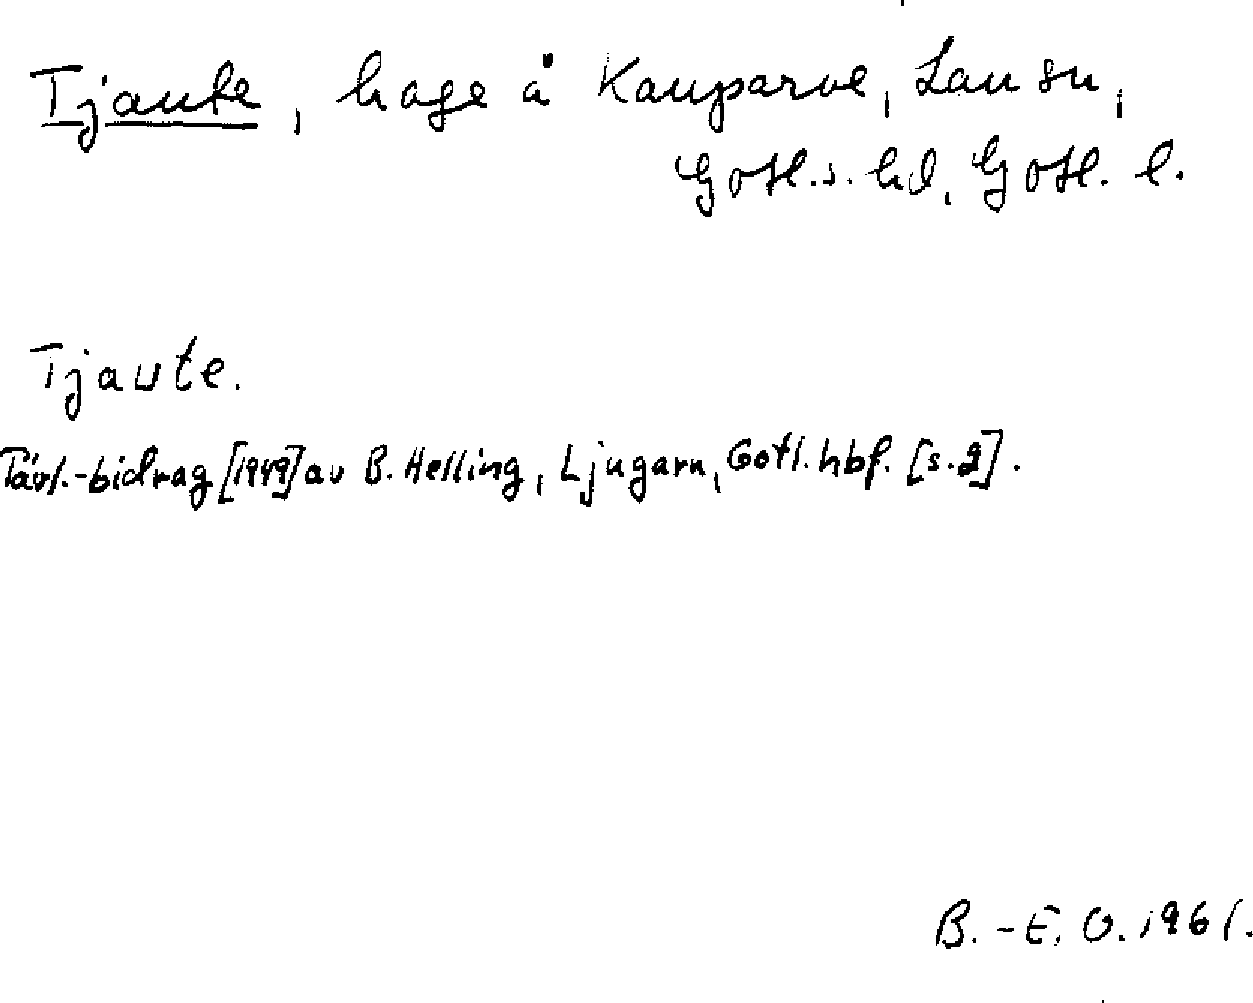 Tjaute, hage å Kauparve, Lau sn,
Gotl. s. hd, Gotl. l.
Tjaute.
Tävl.-bidrag [1949] av B. Helling, Ljugarn, Gotl. hbf. [s. 2].
B.-E. O. 1961.